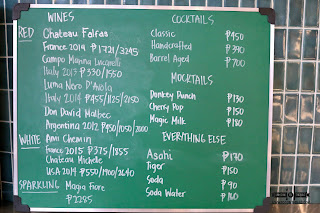 WINES
RED
Chateau Folfas
France 2014 ₱1721/3245
Campo Marina Lucarelli
Italy 2013 ₱330/1550
Luma Nero D'Avola
Italy 2014 ₱455/1125/2150
Don David Malbec
Argentina 2012 ₱450/1050/2000
WHITE
Ami Chemin
France 2015 ₱375/1855
Chateau Michelle
USA 2014 ₱550/1400/2640
SPARKLING
Magia Fiore
₱2285
COCKTAILS
Classic ₱450
Handcrafted ₱390
Barrel Aged ₱700
MOCKTAILS
Donkey Punch ₱130
Cherry Pop ₱150
Magic Milk ₱180
EVERYTHING ELSE
Asahi ₱170
Tiger ₱150
Soda ₱90
Soda Water ₱160